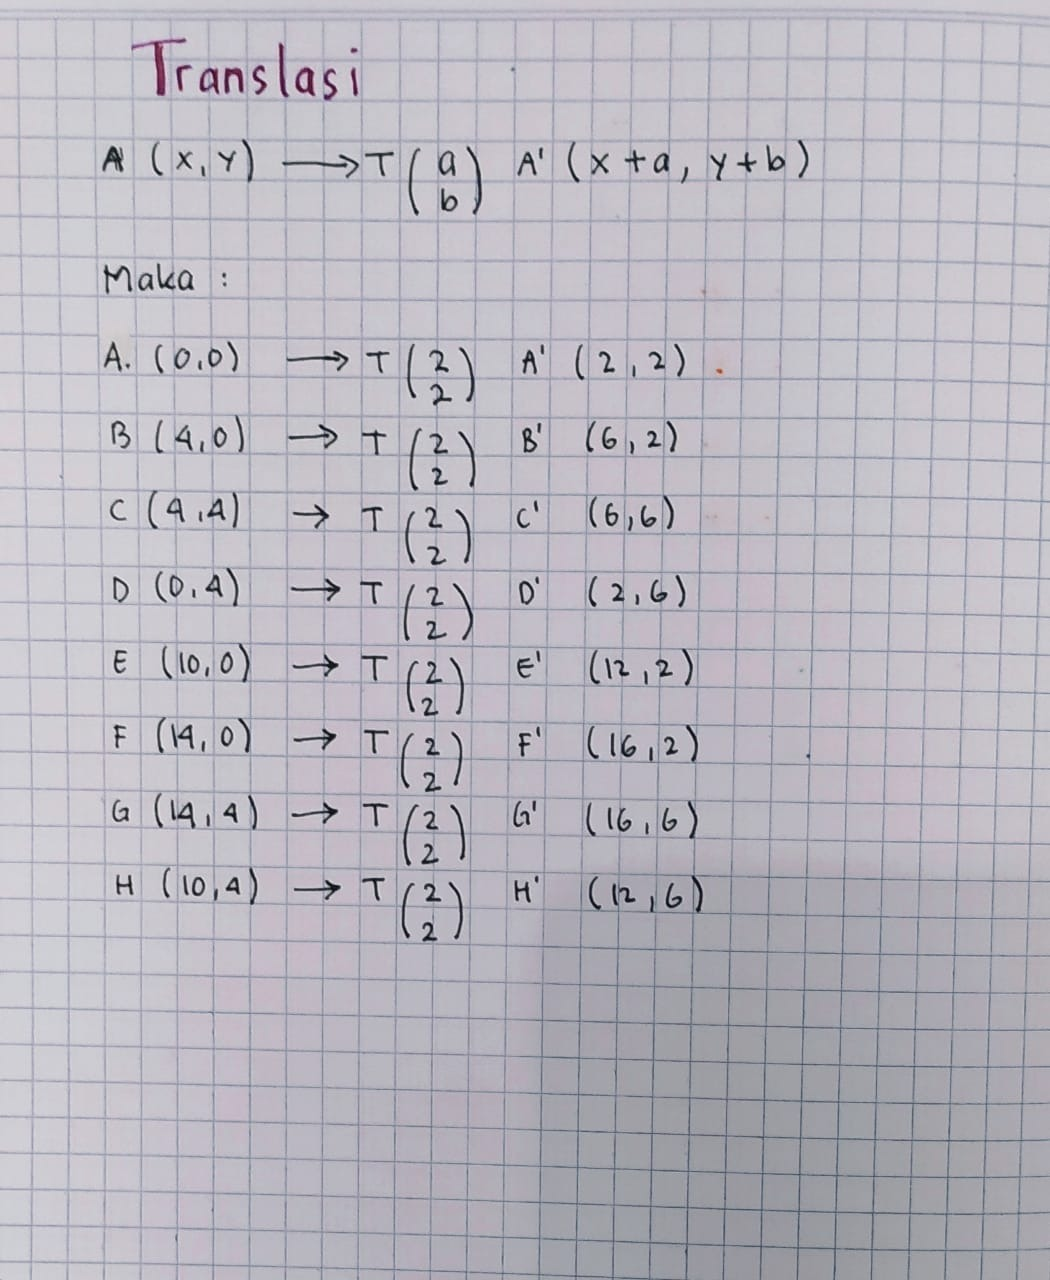 Translasi
A (x, y) → T (a b) A' (x + a, y + b)
Maka :
A. (0,0) → T (2 2) A' (2,2) .
B (4,0) → T (2 2) B' (6,2)
C (4,4) → T (2 2) C' (6,6)
D (0,4) → T (2 2) D' (2,6)
E (10,0) → T (2 2) E' (12,2)
F (14,0) → T (2 2) F' (16,2)
G (14,4) → T (2 2) G' (16,6)
H (10,4) → T (2 2) H' (12,6)